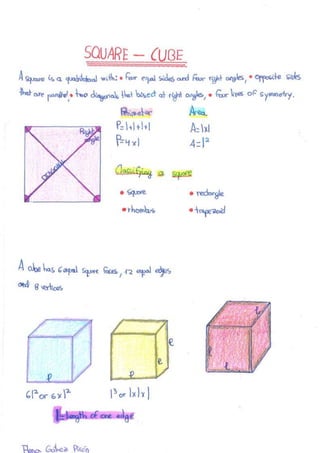 SQUARE - CUBE
A square is a quadrilateral with: • Four equal sides and four right angles, • opposite sides
that are parallel, • two diagonals that bisect at right angles, • four lines of symmetry.
Perimeter
Area
Right angle
P=l+l+l+l
A=lxl
P=4xl
A=l²
DIAGONAL
Classifying a square
• square
• rectangle
• rhombus
• trapezoid
A cube has 6 equal square faces, 12 equal edges
and 8 vertices
l
l
l
l
l
l
6l² or 6xl²
l³ or lxlxl
l=length of one edge